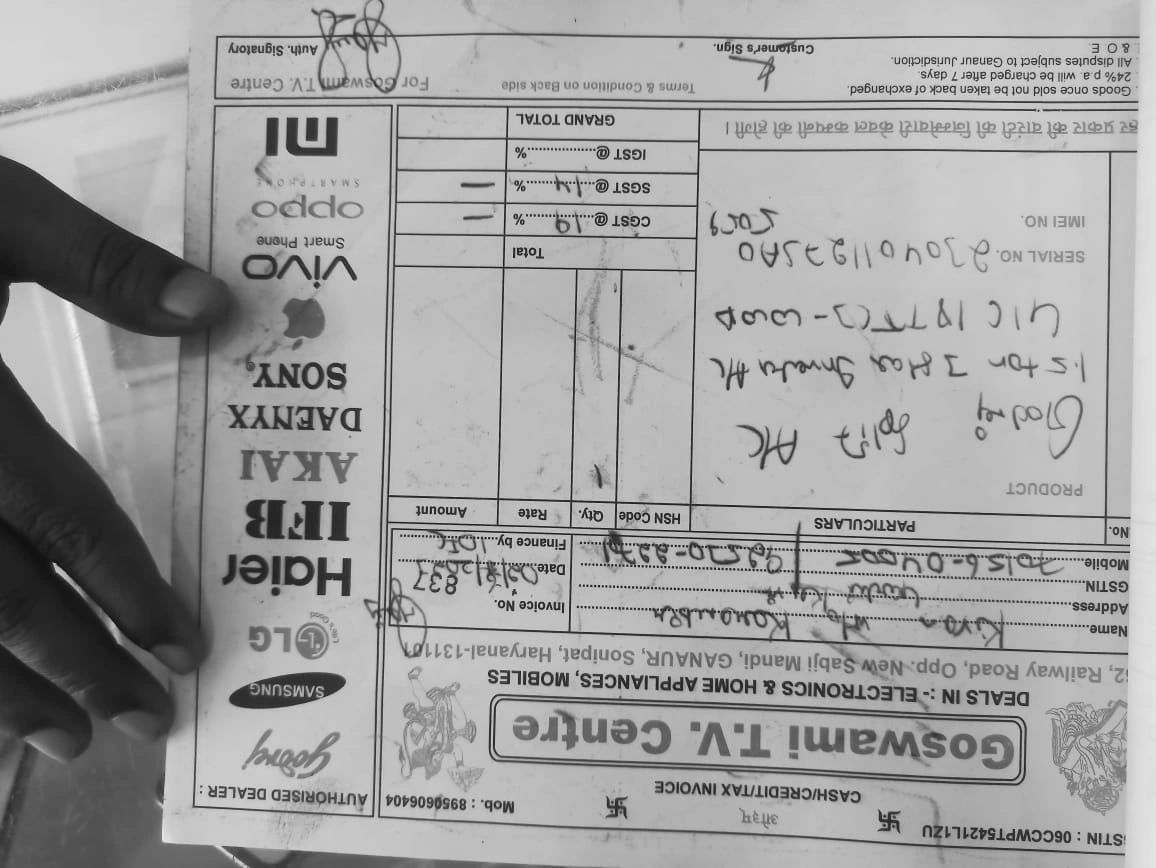 STIN : 06CCWPT5421L1ZU 卐 ओ३म् 卐 Mob. : 8950606404
CASH/CREDIT/TAX INVOICE
Goswami T.V. Centre
DEALS IN :- ELECTRONICS & HOME APPLIANCES, MOBILES
2, Railway Road, Opp. New Sabji Mandi, GANAUR, Sonipat, Haryanal-131101
Name Kiran W/o
Address
GSTIN
Mobile 70156-04005
Invoice No. 837
Date:
Finance by
No. PARTICULARS HSN Code Qty. Rate Amount
PRODUCT
Godrej Split A/C 1
1.5 ton 3 Star Inverter A/C
SERIAL NO.
IMEI NO.
Total
CGST @ %
SGST @ 14 % —
IGST @ %
GRAND TOTAL
हर प्रकार की वारंटी की जिम्मेवारी केवल कम्पनी की होगी।
Goods once sold not be taken back of exchanged.
24% p.a. will be charged after 7 days.
All disputes subject to Ganaur Jurisdiction.
& O E
Terms & Condition on Back side
Customer's Sign.
For Goswami T.V. Centre
Auth. Signatory
AUTHORISED DEALER :
godrej
SAMSUNG
LG
Life's Good
Haier
IFB
AKAI
DAENYX
SONY
vivo
Smart Phone
oppo
SMARTPHONE
MI